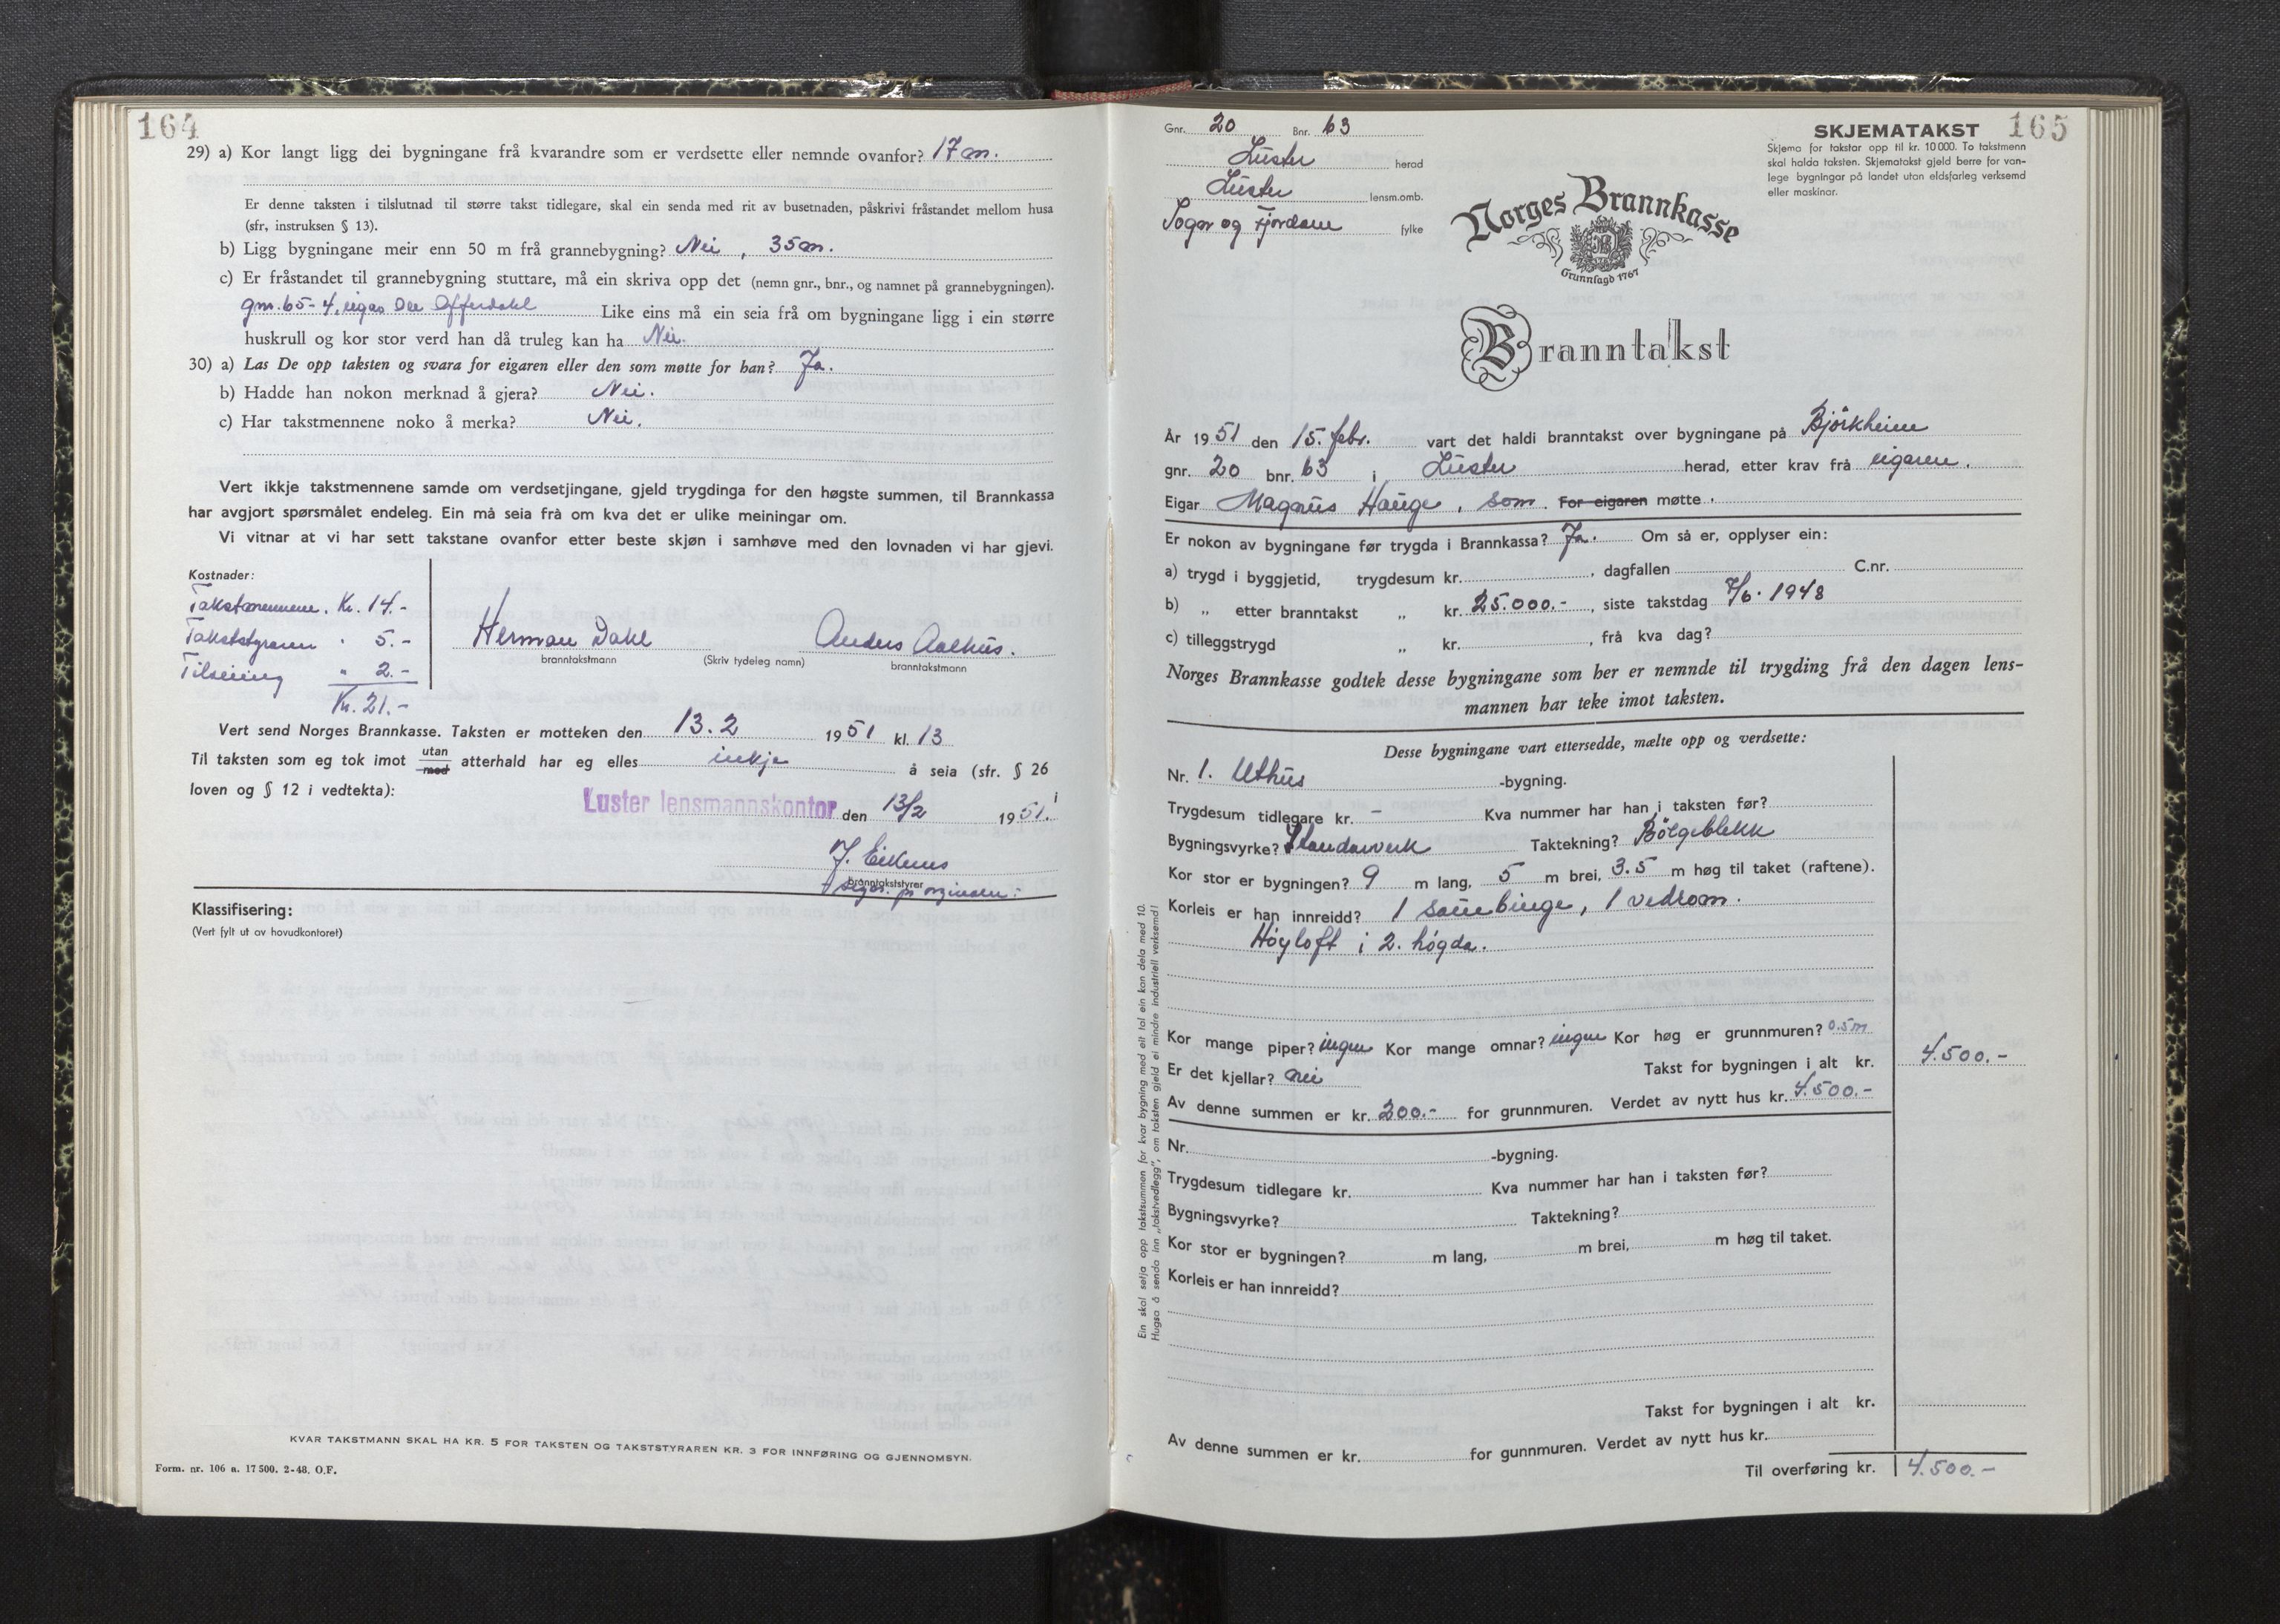 164
29) a) Kor langt ligg dei bygningane frå kvarandre som er verdsette eller nemnde ovanfor? 17 m.
Er denne taksten i tilslutnad til større takst tidlegare, skal ein senda med rit av busetnaden, påskrivi fråstandet mellom husa
(sfr, instruksen § 13).
b) Ligg bygningane meir enn 50 m frå grannebygning? Nei, 35 m.
c) Er fråstandet til grannebygning stuttare, må ein skriva opp det (nemn gnr., bnr., og namnet på grannebygningen).
gnr. 65-4, eigar Ole Offerdahl Like eins må ein seia frå om bygningane ligg i ein større
huskrull og kor stor verd han då truleg kan ha Nei.
30) a) Las De opp taksten og svara for eigaren eller den som møtte for han? Ja.
b) Hadde han nokon merknad å gjera? Nei.
c) Har takstmennene noko å merka? Nei.
Vert ikkje takstmennene samde om verdsetjingane, gjeld trygdinga for den høgste summen, til Brannkassa
har avgjort spørsmålet endeleg. Ein må seia frå om kva det er ulike meiningar om.
Vi vitnar at vi har sett takstane ovanfor etter beste skjøn i samhøve med den lovnaden vi har gjevi.
Kostnader:
Takstmennene. Kr. 14.-
Takststyraren " 5.-
" 2.-
Kr. 21.-
Herman Dahl
Anders Aalhus.
branntakstmann
(Skriv tydeleg namn)
branntakstmann
Vert send Norges Brannkasse. Taksten er motteken den 13.2 1951 kl. 13
Til taksten som eg tok imot utan med atterhald har eg elles inkje å seia (sfr. § 26 i
loven og § 12 i vedtekta):
Luster lensmannskontor den 13/2 1951.
branntakststyrer
Klassifisering:
(Vert fylt ut av hovudkontoret)
KVAR TAKSTMANN SKAL HA KR. 5 FOR TAKSTEN OG TAKSTSTYRAREN KR. 3 FOR INNFØRING OG GJENNOMSYN.
Form. nr. 106 a. 17 500. 2-48. O.F.
Gnr. 20 Bnr. 63
Luster herad
Luster lensm.omb.
Sogn og Fjordane fylke
SKJEMATAKST 165
Skjema for takstar opp til kr. 10 000. To takstmenn
skal halda taksten. Skjematakst gjeld berre for van-
lege bygningar på landet utan eldsfarleg verksemd
eller maskinar.
Norges Brannkasse
Grunnlagd 1767
Branntakst
År 1951 den 15. febr. vart det haldi branntakst over bygningane på Bjørkheim
gnr. 20 bnr. 63 i Luster herad, etter krav frå eigaren.
Eigar Magnus Hauge, som For eigaren møtte.
Er nokon av bygningane før trygda i Brannkassa? Ja. Om så er, opplyser ein:
a) trygd i byggjetid, trygdesum kr. , dagfallen C.nr.
b) „ etter branntakst „ kr. 25.000.- , siste takstdag 7/6. 1948
c) tilleggstrygd „ kr. , frå kva dag?
Norges Brannkasse godtek desse bygningane som her er nemnde til trygding frå den dagen lens-
mannen har teke imot taksten.
Desse bygningane vart ettersedde, mælte opp og verdsette:
Nr. 1. Uthus -bygning.
Trygdesum tidlegare kr. - Kva nummer har han i taksten før?
Bygningsvyrke? Standarverk Taktekning? Bölgeblekk
Kor stor er bygningen? 9 m lang, 5 m brei, 3.5 m høg til taket (raftene).
Korleis er han innreidd? 1 sauebinge, 1 vedrom.
Høyloft i 2. høgda.
Kor mange piper? ingen Kor mange omnar? ingen Kor høg er grunnmuren? 0.5m
Er det kjellar? nei Takst for bygningen i alt kr. 4.500.-
Av denne summen er kr. 200.- for grunnmuren. Verdet av nytt hus kr. 4.500.-
Nr. -bygning.
Trygdesum tidlegare kr. Kva nummer har han i taksten før?
Bygningsvyrke? Taktekning?
Kor stor er bygningen? m lang, m brei, m høg til taket.
Korleis er han innreidd?
Takst for bygningen i alt kr.
Av denne summen er kr. for gunnmuren. Verdet av nytt hus kr.
Til overføring kr. 4.500.-
Ein skal setja opp takstsummen for kvar bygning med eit tal ein kan dela med 10.
Hugsa å senda inn „takstvedlegg", om taksten gjeld ei mindre industriell verksemd!